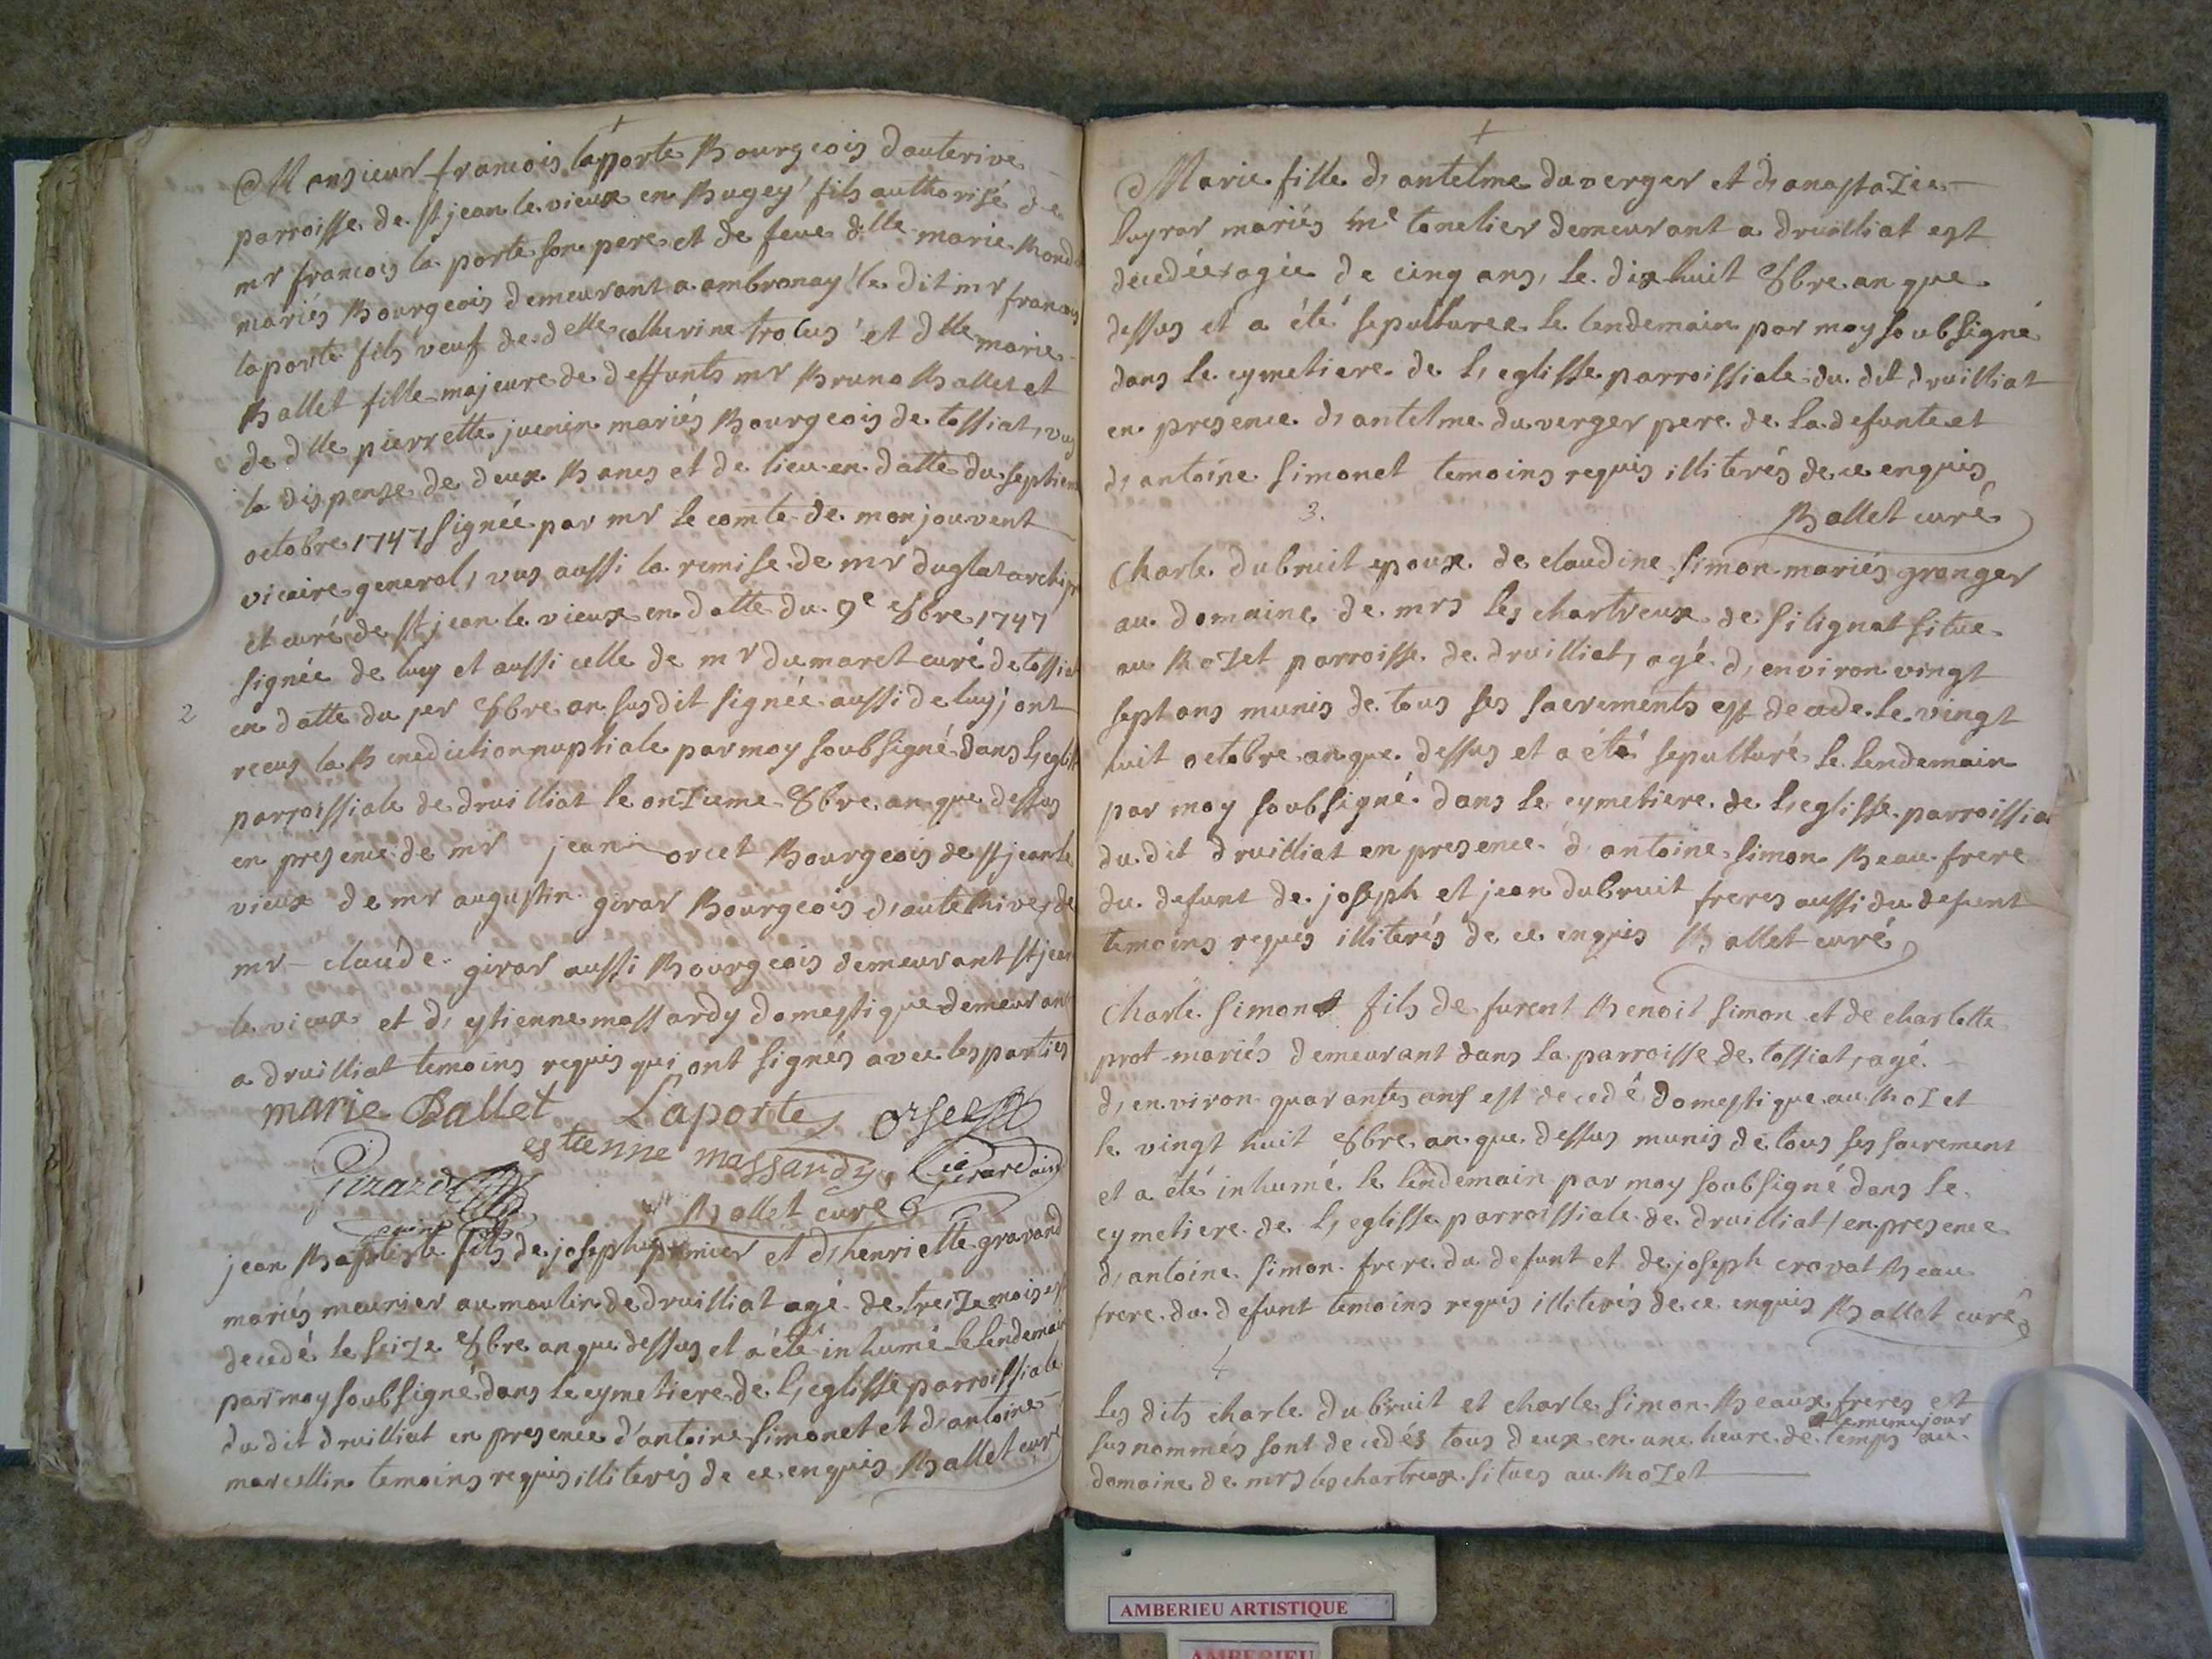 Monsieur francois laporte Bourgeois dauterive
parroisse de st jean le vieux en Bugey fils authorisé de
mr francois la porte son pere et de feue dlle marie
mariés Bourgeois demeurant a ambronay le dit mr francois
laporte fils veuf de delle catherine trocus et dlle marie
Ballet fille majeure de deffunts mr Bruno Ballet et
de dlle pierrette juenin mariés Bourgeois de tossiat, vus
la dispense de deux Bancs et de lieu en datte du septiem
octobre 1747 signée par mr le comte de monjouvent
vicaire general, vus aussi la remise de mr duglas archipr
et curé de st jean le vieux en datte du 9e 8bre 1747
signée de luy et aussi celle de mr dumaret curé de tossiat
2
en datte du per 8bre an susdit signée aussi de luy, ont
recus la Benediction nuptiale par moy soubsigné dans l,eglisse
parroissiale de druilliat le onzieme 8bre an que dessus
en presence de mr jean orcet Bourgeois de st jean le
vieux de mr augustin girar Bourgeois d,auterive, de
mr claude girar aussi Bourgeois demeurant st jean
le vieux et d, estienne massardy domestique demeurant
a druilliat temoins requis qui ont signés avec les parties
marie Ballet Laporte orset
estienne massardy Girardain
Girard
Ballet curé
jean Baptiste fils de joseph et d,henriette gravand
mariés meunier au moulin de druilliat agé de treize mois est
decedé le seize 8bre an que dessus et a été inhumé le lendemain
par moy soubsigné dans le cymetiere de l,eglisse parroissiale
du dit druilliat en presence d'antoine simonet et d,antoine
marcellin temoins requis illiterés de ce enquis Ballet curé
Marie fille d, antelme duverger et d, anastazie
luyrar mariés me tonelier demeurant a druilliat est
decedée agée de cinq ans, le dix huit 8bre an que
dessus et a été sepulturee le lendemain par moy soubsigné
dans le cymetiere de l, eglisse parroissiale du dit druilliat
en presence d, antelme duverger pere de la defunte et
d, antoine simonet temoins requis illiterés de ce enquis
3. Ballet curé
Charle dubruit epoux de claudine simon mariés granger
au domaine de mrs les chartreux de silignat situe
au Rozet parroisse de druilliat, agé d, environ vingt
sept ans munis de tous ses sacrements est decede le vingt
huit octobre an que dessus et a été sepulturé le lendemain
par moy soubsigné dans le cymetiere de l,eglisse parroissial
du dit druilliat en presence d antoine simon Beau frere
du defunt de joseph et jean dubruit freres aussi du defunt
temoins requis illiterés de ce enquis Ballet curé
Charle simon fils de furent Benoit simon et de charlotte
prot mariés demeurant dans la parroisse de tossiat, agé
d, environ quarantes ans est decedé domestique au Rozet
le vingt huit 8bre an que dessus munis de tous ses sacrement
et a été inhumé le lendemain par moy soubsigné dans le
cymetiere de l, eglisse parroissiale de druilliat / en presence
d, antoine simon frere du defunt et de joseph cravat Beau
frere du defunt temoins requis illiterés de ce enquis Ballet curé
4
les dits charle dubruit et charle simon Beaux freres et
le meme jour
susnommés sont decedés tous deux en une heure de temps au
domaine de mrs les chartreux situes au Rozet
AMBERIEU ARTISTIQUE
AMBERIEU